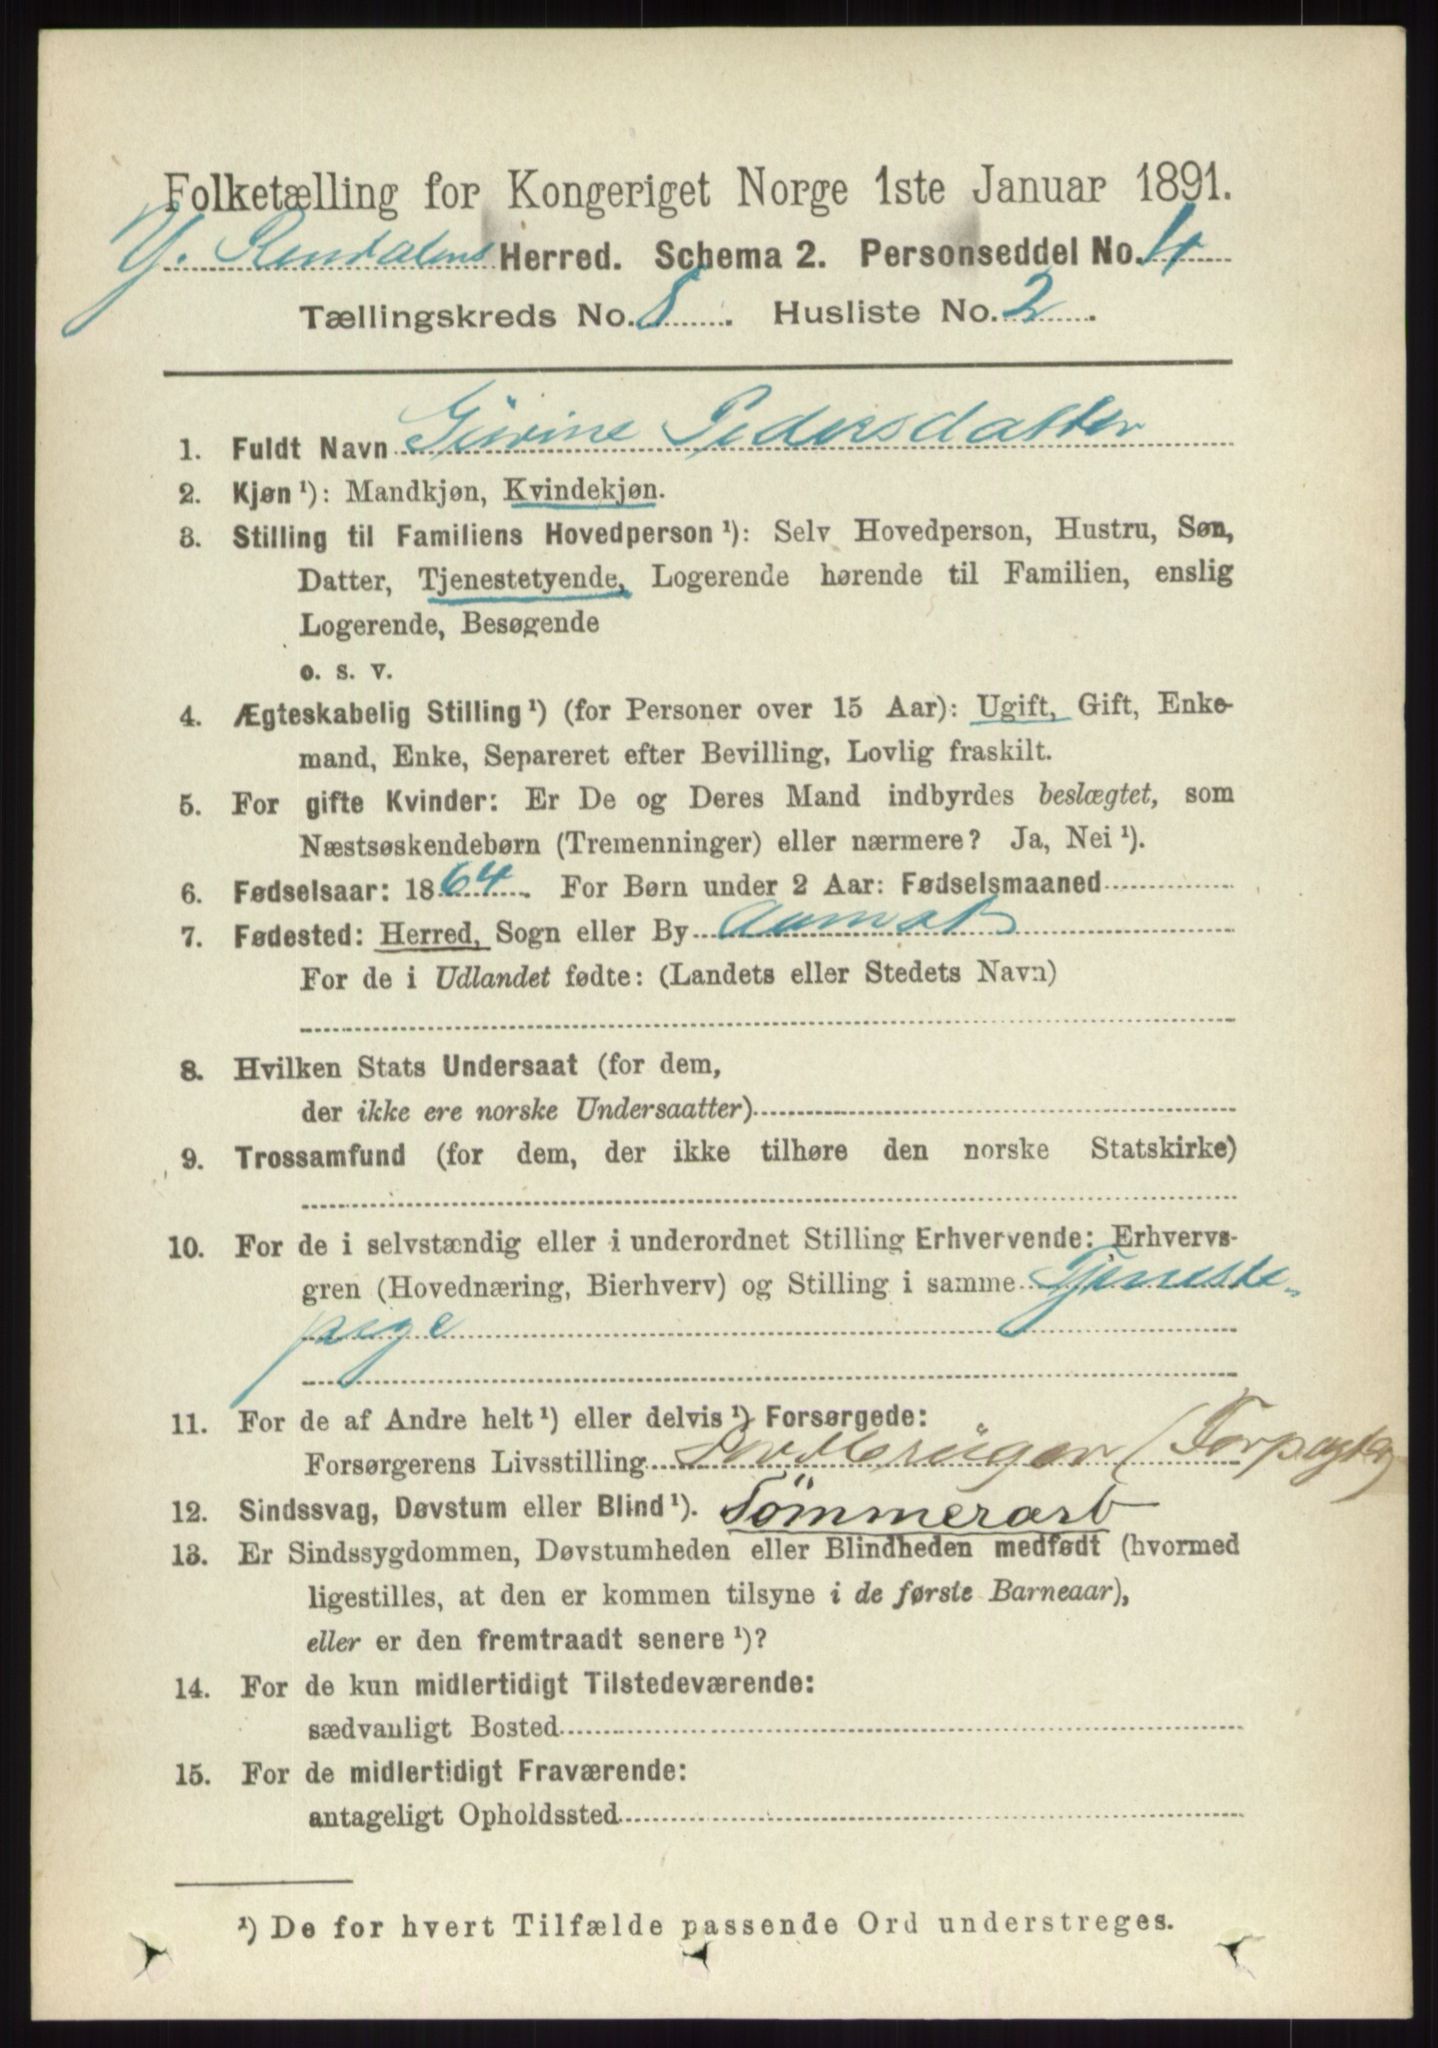 Folketælling for Kongeriget Norge 1ste Januar 1891.
Y. Rendalens Herred. Schema 2. Personseddel No. 4
Tællingskreds No. 8. Husliste No. 2.
1. Fuldt Navn Gurine Pedersdatter
2. Kjøn ¹): Mandkjøn, Kvindekjøn.
3. Stilling til Familiens Hovedperson ¹): Selv Hovedperson, Hustru, Søn,
Datter, Tjenestetyende, Logerende hørende til Familien, enslig
Logerende, Besøgende
o. s. v.
4. Ægteskabelig Stilling ¹) (for Personer over 15 Aar): Ugift, Gift, Enke-
mand, Enke, Separeret efter Bevilling, Lovlig fraskilt.
5. For gifte Kvinder: Er De og Deres Mand indbyrdes beslægtet, som
Næstsøskendebørn (Tremenninger) eller nærmere? Ja, Nei ¹).
6. Fødselsaar: 1864. For Børn under 2 Aar: Fødselsmaaned
7. Fødested: Herred, Sogn eller By Aamot
For de i Udlandet fødte: (Landets eller Stedets Navn)
8. Hvilken Stats Undersaat (for dem,
der ikke ere norske Undersaatter)
9. Trossamfund (for dem, der ikke tilhøre den norske Statskirke)
10. For de i selvstændig eller i underordnet Stilling Erhvervende: Erhvervs-
gren (Hovednæring, Bierhverv) og Stilling i samme Tjeneste-
pige
11. For de af Andre helt ¹) eller delvis ¹) Forsørgede:
Forsørgerens Livsstilling (Forpagter
12. Sindssvag, Døvstum eller Blind ¹). Tömmerarb
13. Er Sindssygdommen, Døvstumheden eller Blindheden medfødt (hvormed
ligestilles, at den er kommen tilsyne i de første Barneaar),
eller er den fremtraadt senere ¹)?
14. For de kun midlertidigt Tilstedeværende:
sædvanligt Bosted
15. For de midlertidigt Fraværende:
antageligt Opholdssted
¹) De for hvert Tilfælde passende Ord understreges.